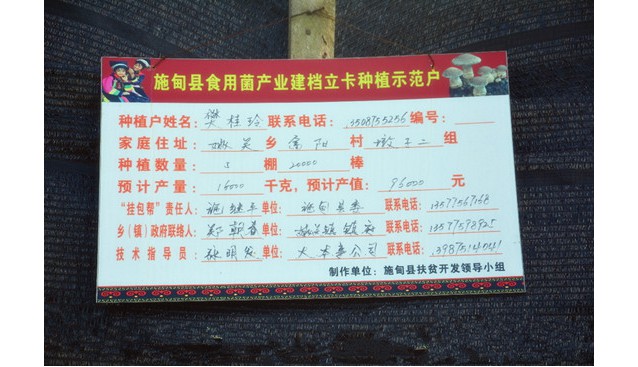 施甸县食用菌产业建档立卡种植示范户
种植户姓名：樊桂玲 联系电话：13508755256 编号：
家庭住址：姚关 乡 富阳 村 墩子二 组
种植数量：5 棚 20000 棒
预计产量：16000 千克，预计产值：96000 元
“挂包帮”责任人：施继 单位：施甸县委 联系电话：13577567168
乡（镇）政府联络人：郑朝 单位：姚关镇镇府 联系电话：13577598925
技术指导员：张明 单位：大 公司 联系电话：
制作单位：施甸县扶贫开发领导小组